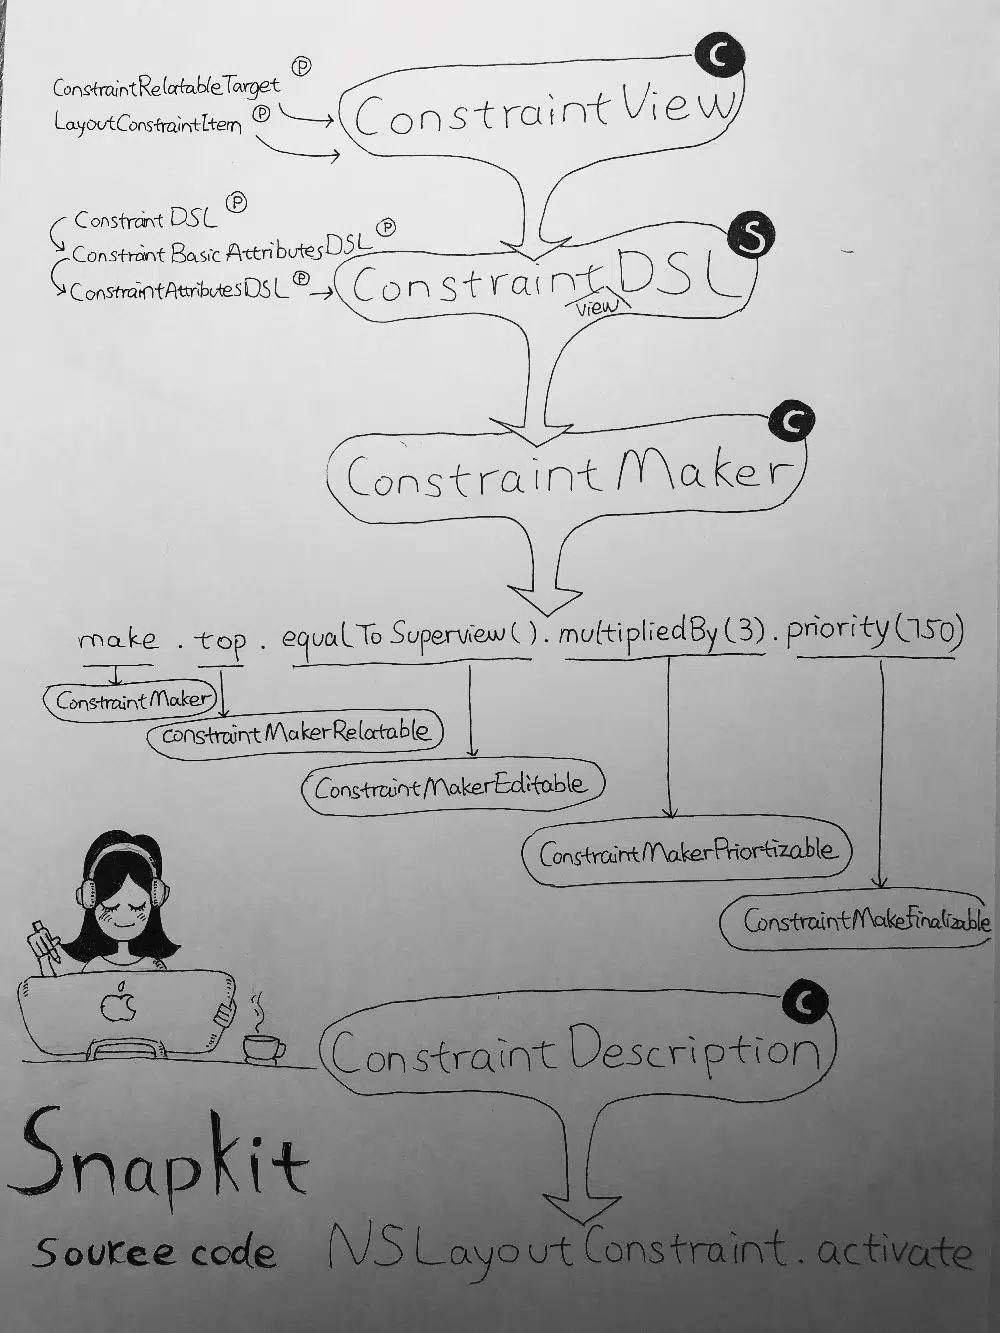 C
ConstraintRelatableTarget P
ConstraintView
LayoutConstraintItem P
Constraint DSL P
S
Constraint Basic AttributesDSL P
ConstraintDSL
ConstraintAttributesDSL P
view
C
ConstraintMaker
make . top . equalToSuperview() . multipliedBy(3) . priority(750)
ConstraintMaker
constraintMakerRelatable
ConstraintMakerEditable
ConstraintMakerPriortizable
ConstraintMakeFinalizable
C
ConstraintDescription
Snapkit
Source code
NSLayoutConstraint.activate